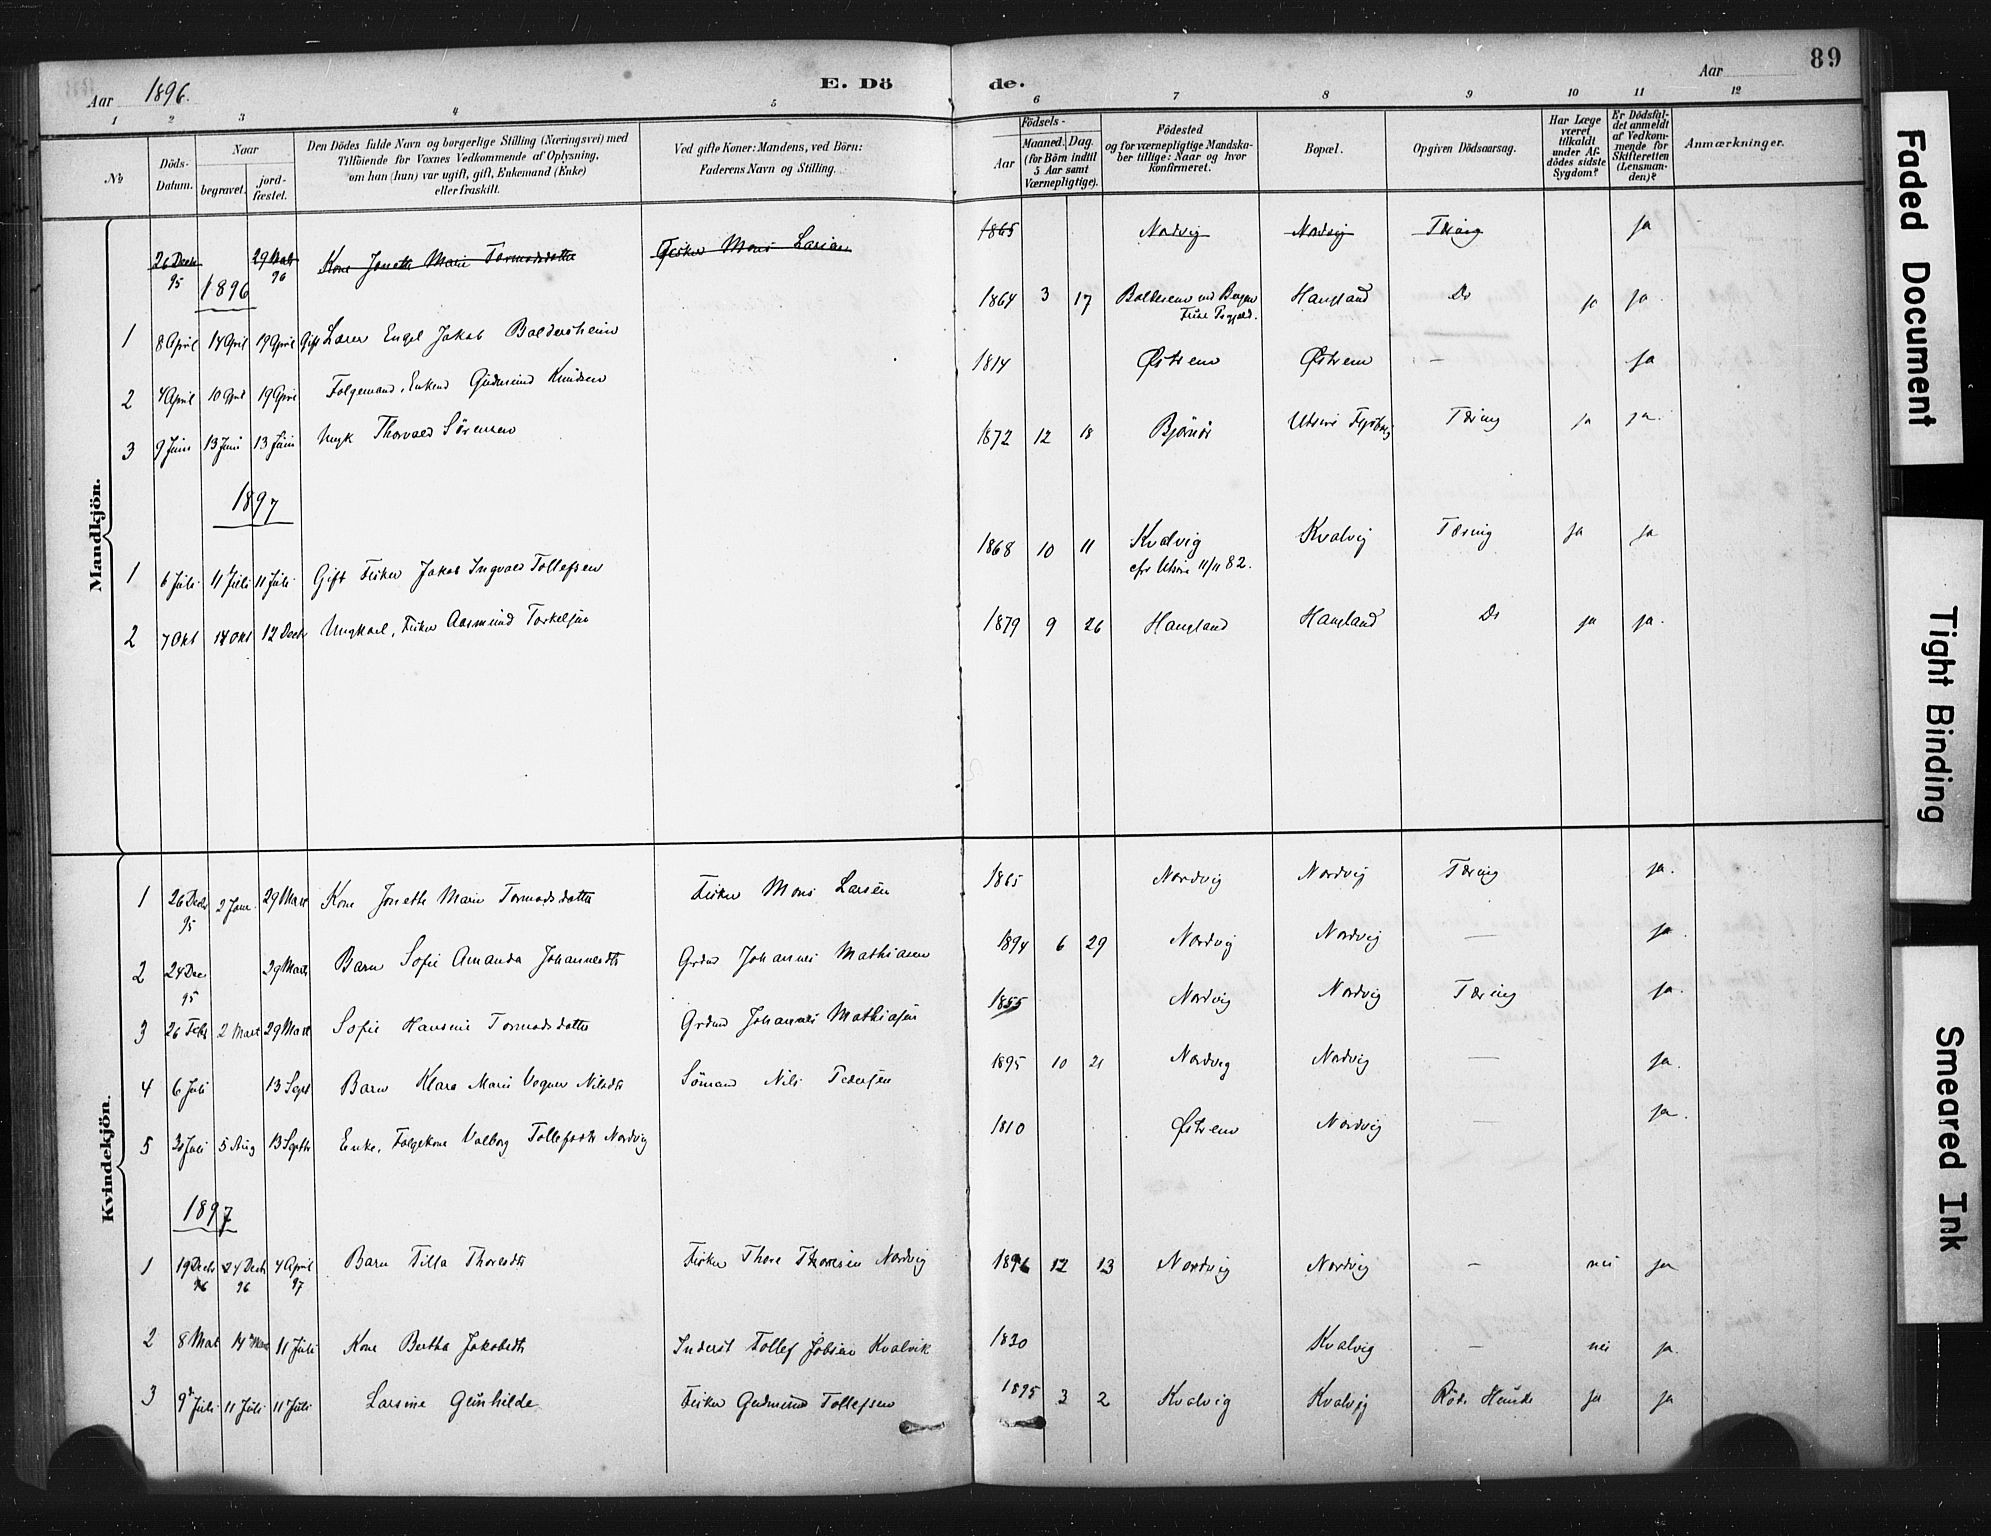 Aar 1896.
E. Dö de.
Aar
89
1 2 3 4 5 6 7 8 9 10 11 12
№
Döds-Datum.
Naar
begravet.
jord-fæstet.
Den Dödes fulde Navn og borgerlige Stilling (Næringsvei) med
Tilföiende for Voxnes Vedkommende af Oplysning,
om han (hun) var ugift, gift, Enkemand (Enke)
eller fraskilt.
Ved gifte Koner: Mandens, ved Börn:
Faderens Navn og Stilling.
Födsels-
Aar
Maaned. Dag.
(for Börn indtil
5 Aar samt
Værnepligtige).
Födested
og for værnepligtige Mandska-
ber tillige: Naar og hvor
konfirmeret.
Bopæl.
Opgiven Dödsaarsag.
Har Læge
været
tilkaldt
under Af-
dödes sidste
Sygdom?
Er Dödsfal-
det anmeldt
af Vedkom-
mende for
Skifteretten
(Lensman-
den)?
Anmærkninger.
Mandkjön.
26 Decbr 95 29 Marts 96 Kone Jonette Marie Tormodsdatter Fisker Mons Larsen 1865 Nordvig Nordvig Tæring ja
1896
1 8 April 14 April 19 April Gift Lærer Engel Jakob Baldersheim 1864 3 17 Haugland Do ja ja
2 4 April 10 April 19 April Folgemand, Enkem Gudmund Knudsen 1814 Østrem Østrem — ja
3 9 Juni 13 Juni 13 Juni Ungk Thorvald Sörensen 1872 12 18 Bjørnör Utsire Tæring ja ja.
1897
1 6 Juli 11 Juli 11 Juli Gift Fisker Jakob Ingvald Tollefsen 1868 10 11 Kvalvig Kvalvig Tæring ja ja
cfr Utsire 11/11 82.
2 7 Okt 14 Okt 12 Decbr Ungkarl, Fisker Aasmund Torkelsen 1879 9 26 Haugland Haugland Do ja ja.
Kvindekjön.
1 26 Decbr 95 2 Jan. 29 Mart Kone Jonette Marie Tormodsdatter Fisker Mons Larsen 1865 Nordvig Nordvig Tæring ja.
2 24 Dec 95 29 Marts Barn Sofie Amanda Johannesdtr Grdmd Johannes Mathiasen 1894 6 29 Nordvig Nordvig — ja.
3 26 Febr 2 Mart 29 Mart Sofie Hansine Tormodsdatter Grdmd Johannes Mathiasen 1855 Nordvig Nordvig Tæring ja.
4 6 Juli 13 Sept Barn Klara Marie Nilsdtr Sömand Nils Pedersen 1895 10 21 Nordvig Nordvig — ja.
5 30 Juli 5 Aug 13 Septbr Enke, Folgekone Valborg Tollefsdtr Nordvig 1810 Østrem Nordvig — ja.
1897
1 19 Decbr 96 24 Decbr 96 4 April 97 Barn Tilla Thoresdtr Fisker Thore Thoresen Nordvig 1896 12 13 Nordvig Nordvig — nei ja
2 8 Mai 14 Mai 11 Juli Kone Bertha Jakobsdtr Inderst Tollef Jobsen Kvalvik 1830 Kvalvig — nei ja.
3 9 Juli 11 Juli 11 Juli Larsine Gunhilde Fisker Gudmund Tollefsen 1895 3 2 Kvalvig Kvalvig Röde Hunde ja ja
Faded Document
Tight Binding
Smeared Ink